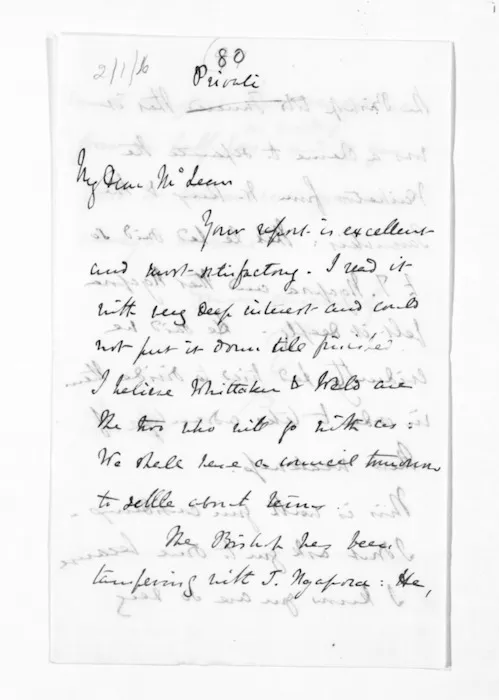 (80)
2/1/
Private
My Dear McLean
Your report is excellent
and most satisfactory. I read it
with very deep interest and could
not put it down till finished
I believe Whittaker & Weld are
the two who will go with us.
We shall have a council tomorrow
to settle about
The Bishop has been
tampering with T. Ngapora: He,